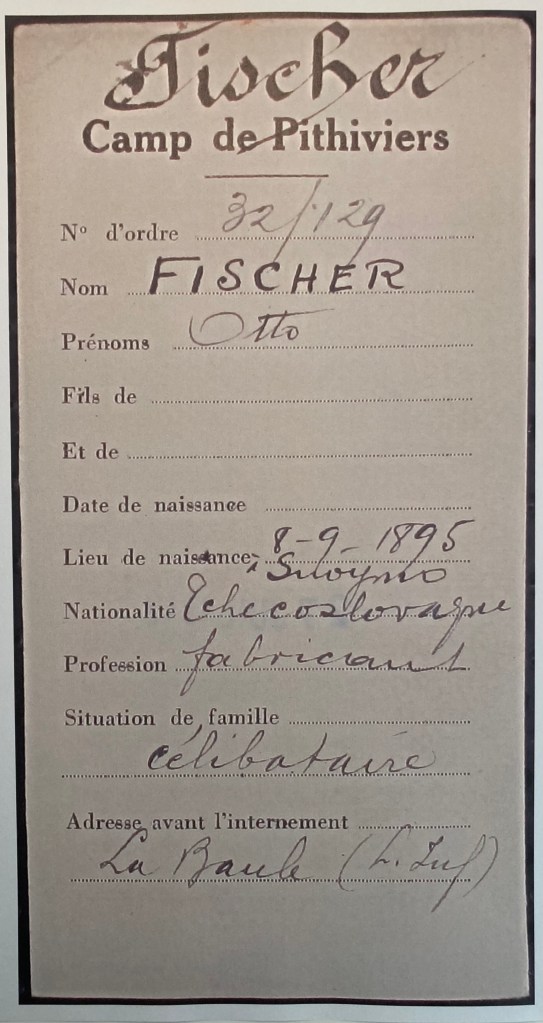 Fischer
Camp de Pithiviers
N° d'ordre 32/129
Nom FISCHER
Prénoms Otto
Fils de
Et de
Date de naissance
8-9-1895
Lieu de naissance
Nationalité Tchecoslovaque
Profession fabricant
Situation de famille
célibataire
Adresse avant l'internement
La Baule (L. Inf)